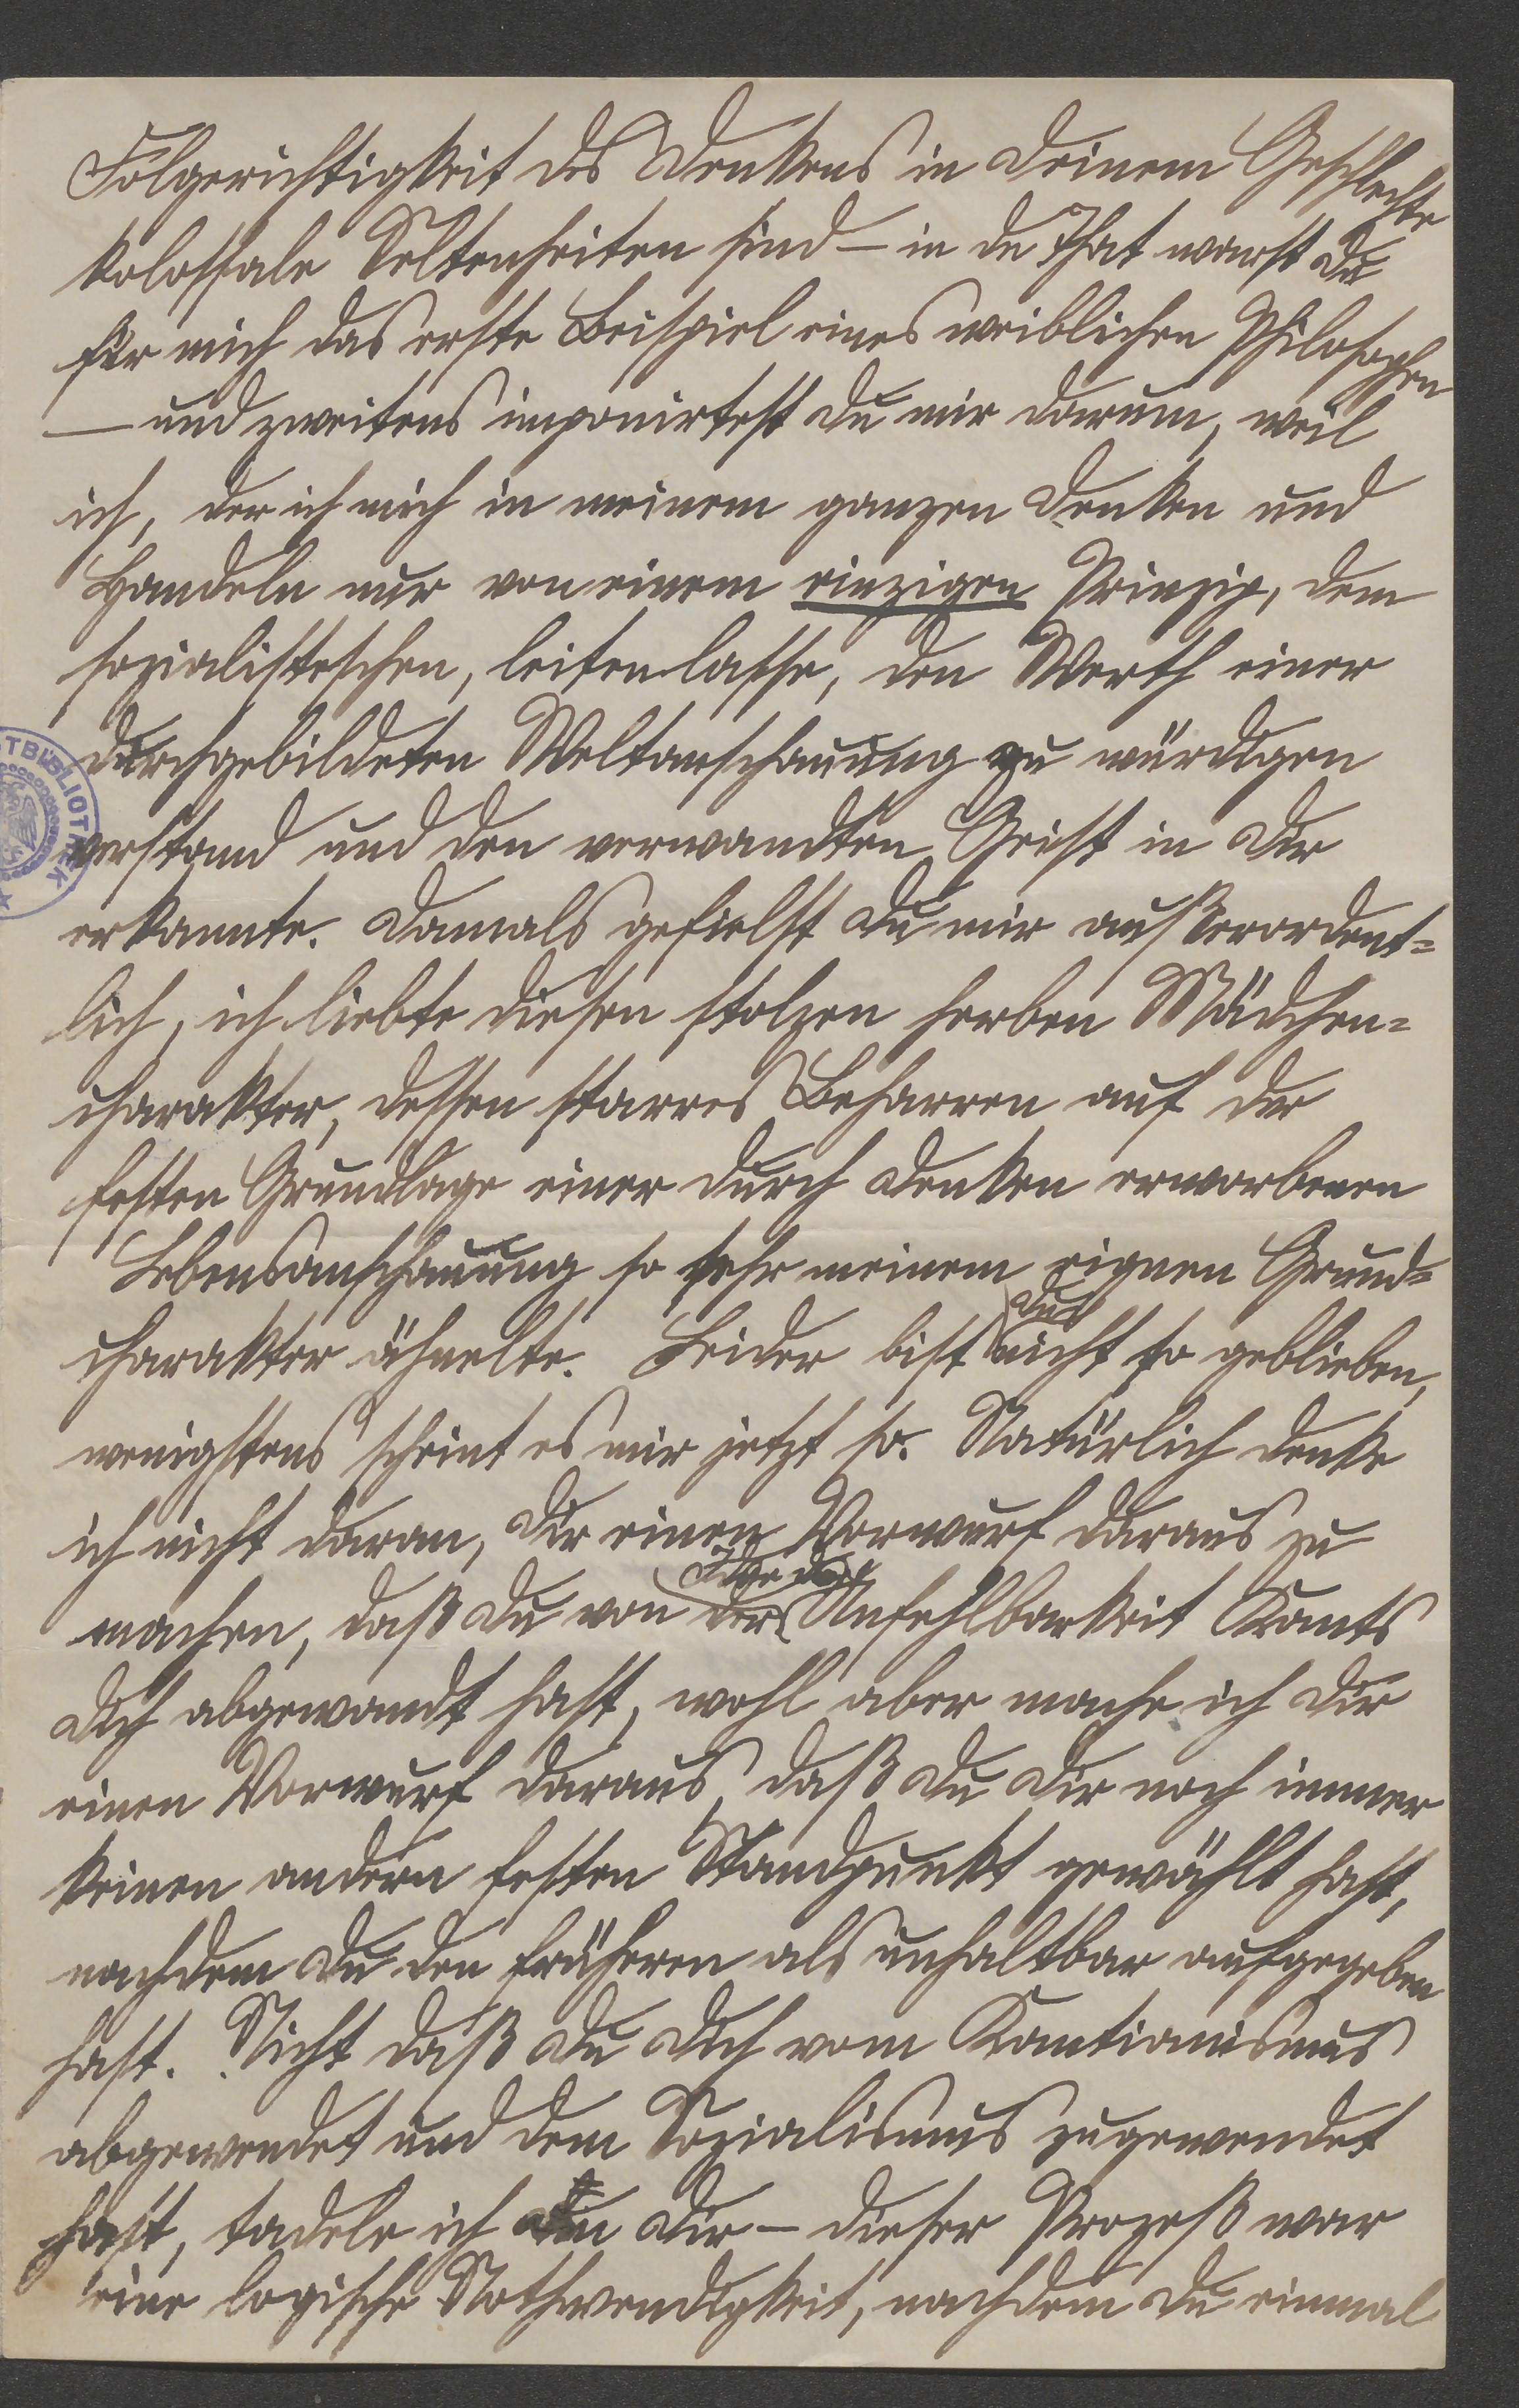 Folgerichtigkeit des Denkens in Deinem Geschlechte
kolossale Seltenheiten sind – in der That warst Du
für mich das erste Beispiel eines weiblichen Philosophen
– und zweitens imponirtest Du mir darum, weil
ich, der ich mich in meinem ganzen Denken und
Handeln nur von einem einzigen Prinzip, dem
sozialistischen, leiten lasse, den Werth einer
durchgebildeten Weltanschauung zu würdigen
verstand und den verwandten Geist in Dir
erkannte. Damals gefielst Du mir außerordent=
lich, ich liebte diesen stolzen herben Mädchen=
charakter, dessen starres Beharren auf der
festen Grundlage einer durch Denken erworbenen
Lebensanschauung so sehr meinem eignen Grund=
charakter ähnelte. Leider bist Du nicht so geblieben,
wenigstens scheint es mir jetzt so. Natürlich denke
ich nicht daran, Dir einen Vorwurf daraus zu
machen, daß Du von der Idee der Unfehlbarkeit Kants
Dich abgewandt hast, wohl aber mache ich Dir
einen Vorwurf daraus, daß Du Dir noch immer
keinen andern festen Standpunkt gewählt hast,
nachdem Du den früheren als unhaltbar aufgegeben
hast. Nicht daß Du Dich vom Kantianismus
abgewendet und dem Sozialismus zugewendet
hast, tadele ich an Dir – dieser Prozeß war
eine logische Nothwendigkeit, nachdem Du einmal
TBIBLIOTHEK